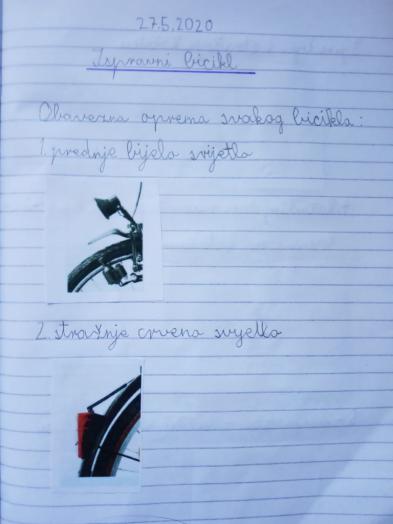 27.5.2020
Ispravni bicikl
Obavezna oprema svakog bicikla:
1. prednje bijelo svijetlo
2. stražnje crveno svjetlo